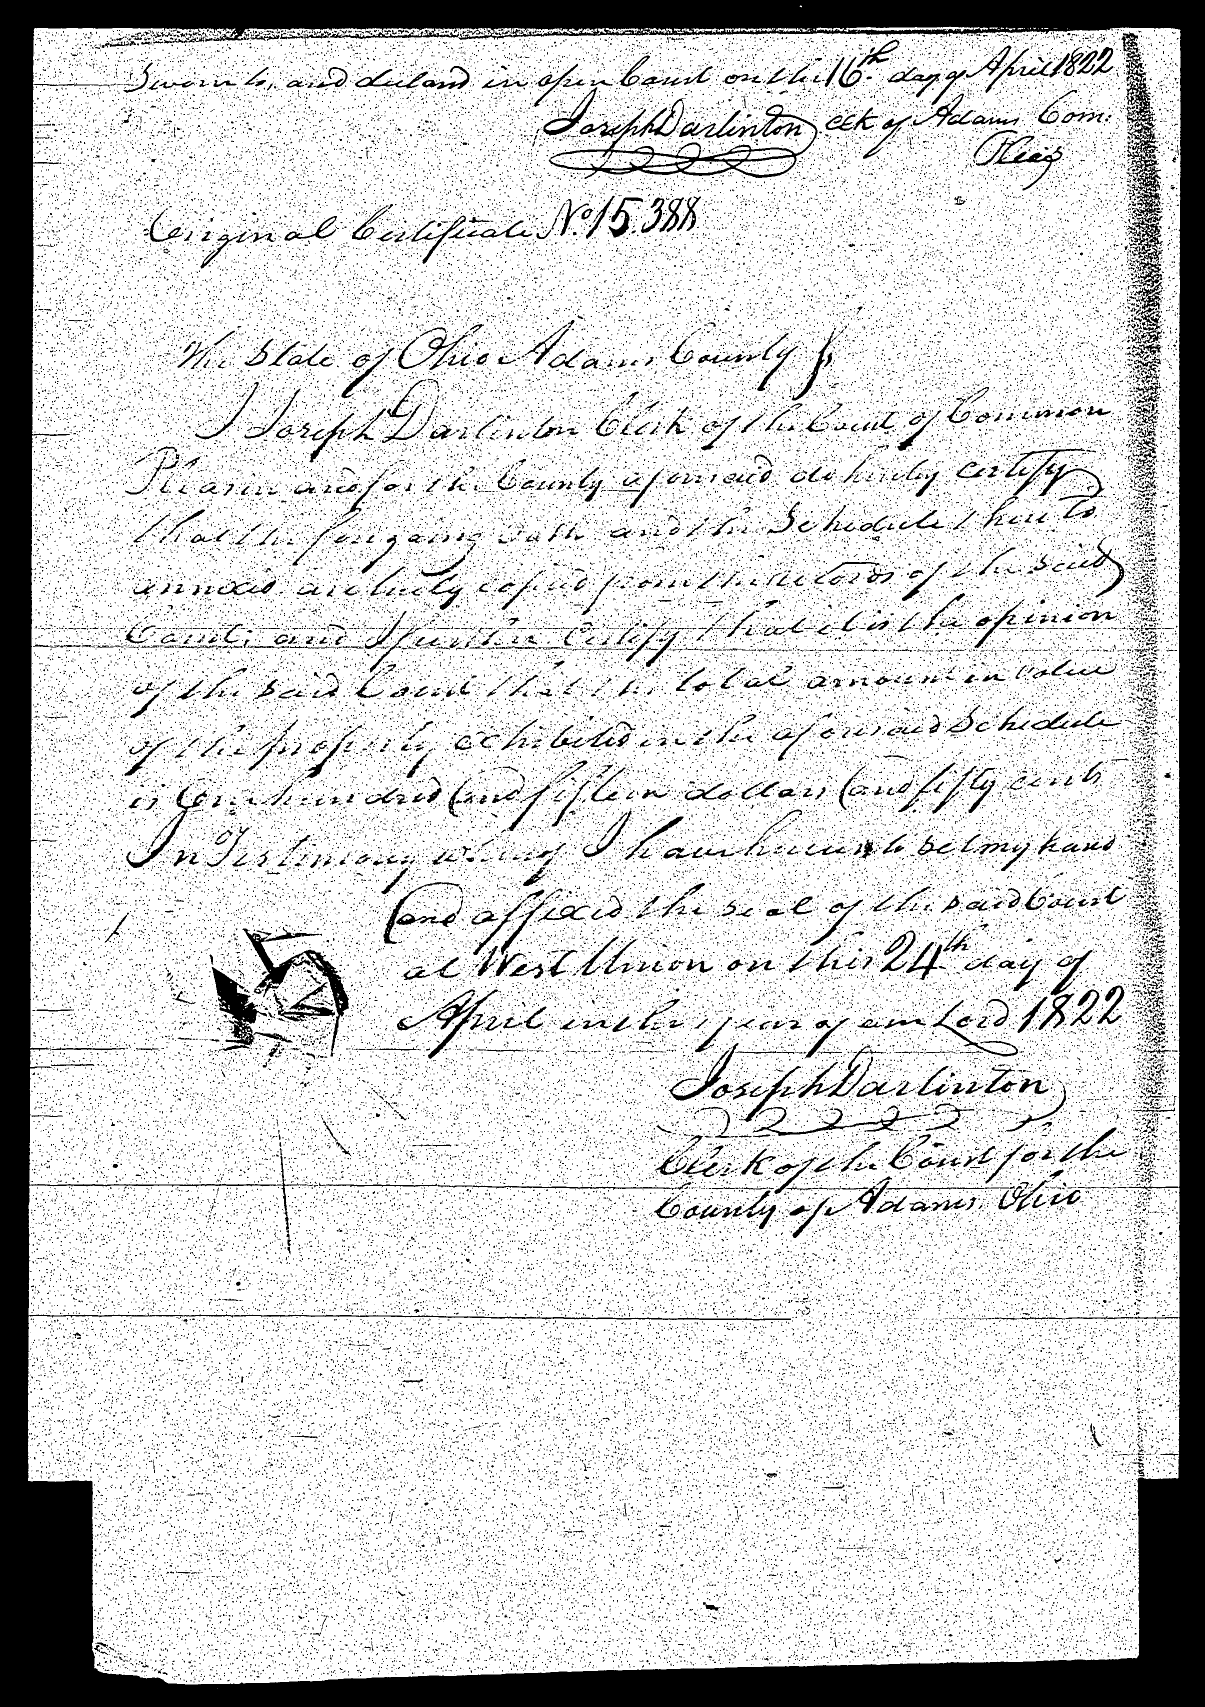 Sworn to, and declared in open Court on the 16th day of April 1822
Joseph Darlinton clk of Adams Com.
Pleas
Original Certificate No. 15.388
The State of Ohio Adams County Ss
I Joseph Darlinton Clerk of the Court of Common
Pleas in and for the County aforesaid do hereby certify
that the foregoing oath and the Schedule thereto
annexed are truly copied from the records of the said
Court; and I further Certify that it is the opinion
of the said Court that the total amount in value
of the property exhibited in the aforesaid Schedule
is One hundred and fifteen dollars and fifty cents
In Testimony whereof I have hereunto set my hand
and affixed the seal of the said Court
at West Union on this 24th day of
April in the year of our Lord 1822
Joseph Darlinton
Clerk of the Court for the
County of Adams. Ohio